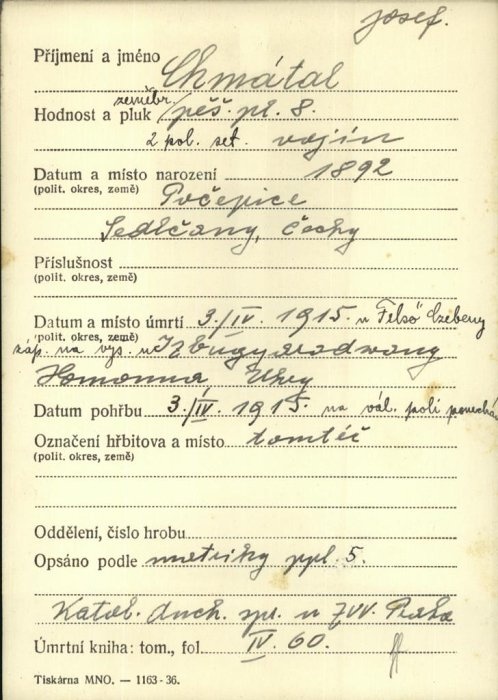 Josef.
Příjmení a jméno Chmátal
zeměbr.
Hodnost a pluk pěš. pl. 8.
2 pol. set. vojín
Datum a místo narození 1892
(polit. okres, země)
Počepice
Sedlčany, Čechy
Příslušnost
(polit. okres, země)
Datum a místo úmrtí 3./IV. 1915. u Felsö Czebeny
(polit. okres, země)
záp. na vys. u Izbugyaradvany
Homonna, Uhry
Datum pohřbu 3./IV. 1915. na vál. poli ponechán
Označení hřbitova a místo tomtéž
(polit. okres, země)
Oddělení, číslo hrobu
Opsáno podle matriky ppl. 5.
Katol. duch. spr. u ZVV. Praha
Úmrtní kniha: tom., fol. IV. 60.
Tiskárna MNO. — 1163-36.